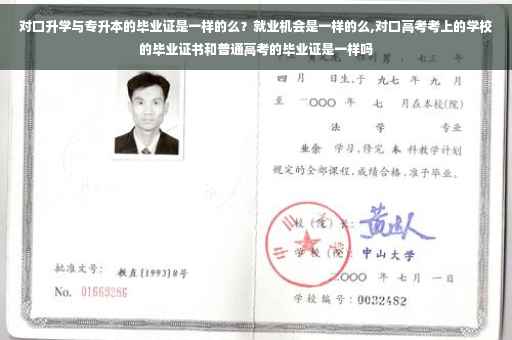 对口升学与专升本的毕业证是一样的么？就业机会是一样的么,对口高考考上的学校
的毕业证书和普通高考的毕业证是一样吗
四 月 日生,于 九七 年 九 月
至 二〇〇〇 年 七 月在本校(院)
法 学 专业
业余 学习,修完 本 科教学计划
规定的全部课程,成绩合格,准予毕业。
校(院)长:
学校(院): 中山大学
二〇〇〇 年 七 月 一日
学校编号: 0032482
批准文号: 教直(1993)8号
No. 01669286